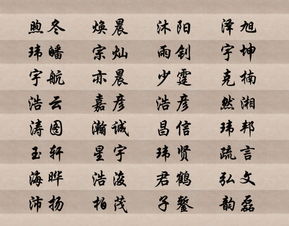 煦冬 焕晨 沐阳 泽旭
玮皤 宗灿 雨钊 宇坤
宇航 亦晨 少霆 克楠
浩云 嘉彦 浩彦 然湘
涛图 瀚诚 昌信 玮邦
玉轩 星宇 玮贤 疏言
海晔 浩浚 君鹤 弘文
沛扬 柏茂 子鏊 韵磊